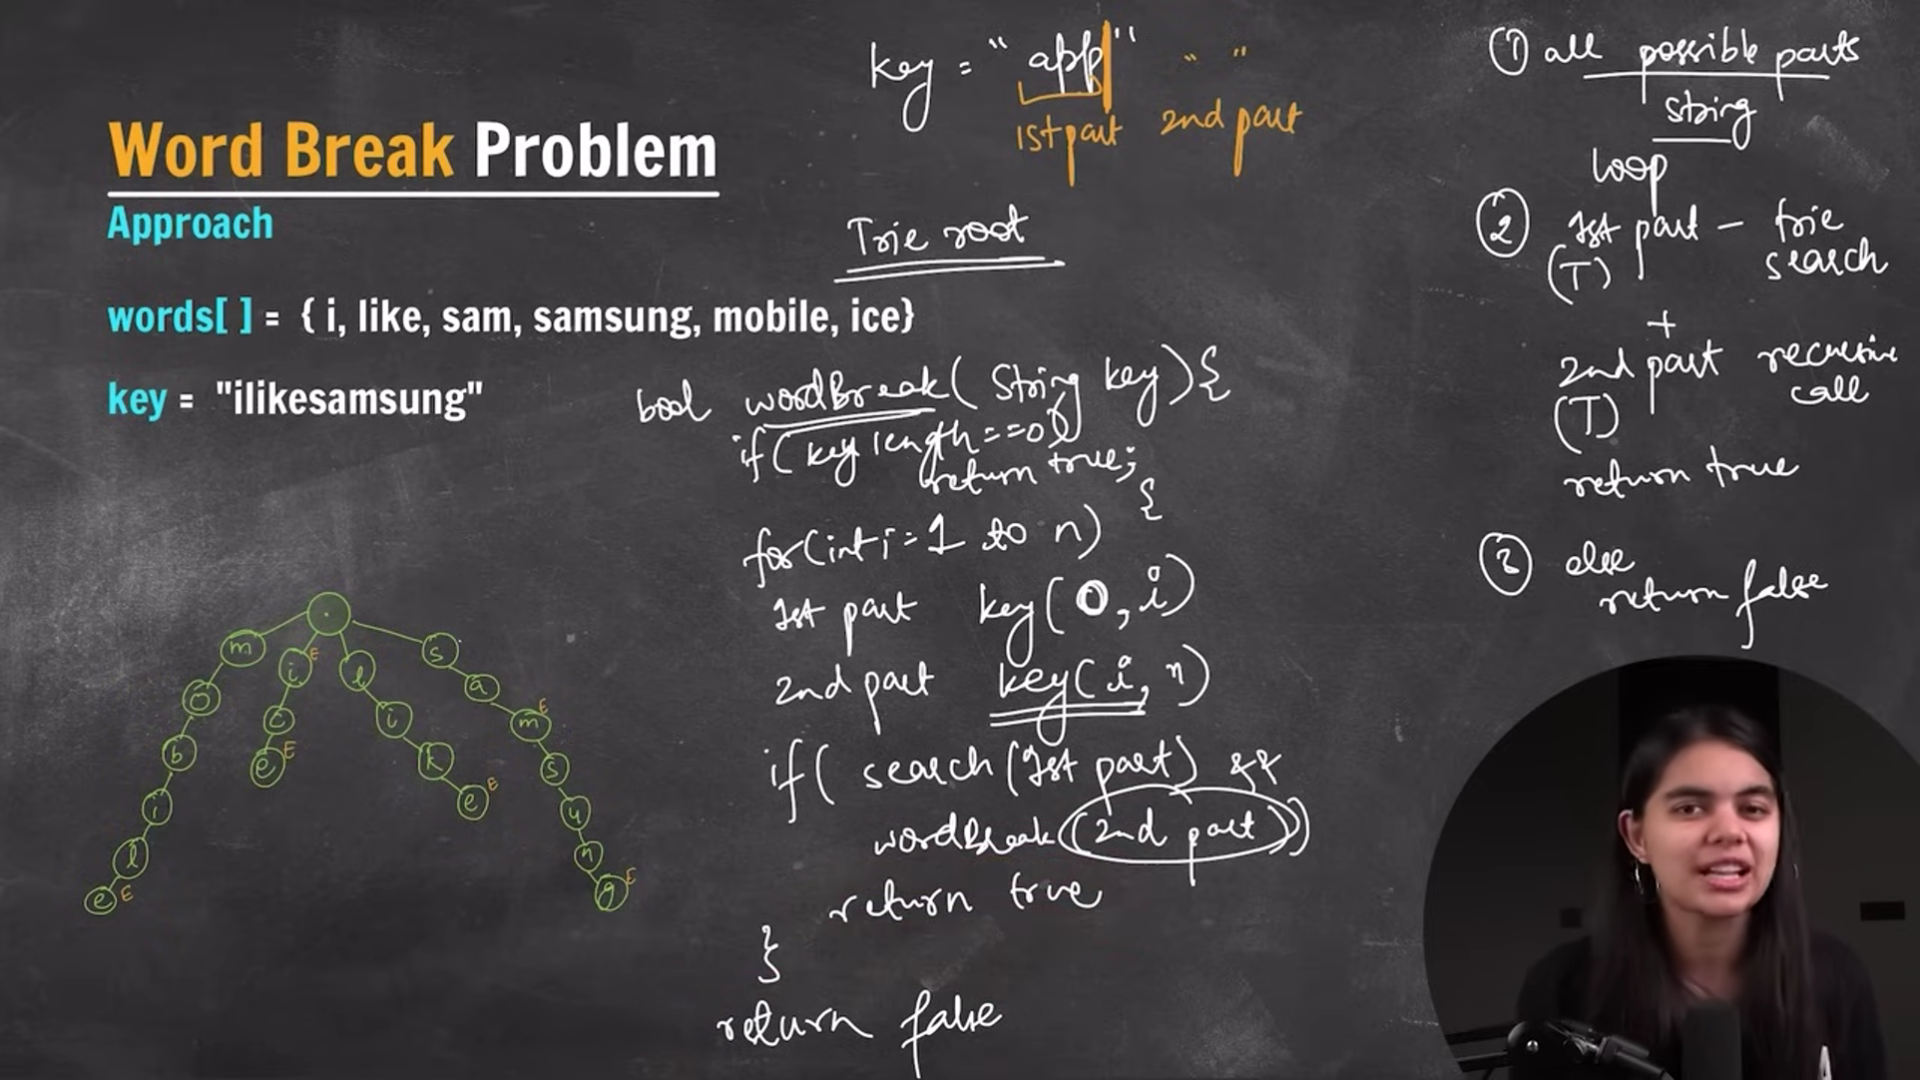 Word Break Problem
Approach
words[ ] = { i, like, sam, samsung, mobile, ice}
key = "ilikesamsung"
key = "app" " "
1st part 2nd part
Trie root
bool wordBreak( String key) {
if( key length==0)
return true;
for(int i = 1 to n) {
1st part key(0, i)
2nd part key(i, n)
if( search(1st part) &&
wordBreak(2nd part))
return true
}
return false
① all possible parts
string
loop
② 1st part - trie
(T) search
+
2nd part recursive
(T) call
return true
③ else
return false
.
m i E l s
o c i a
b e E k m E
i e E s
l u
e E n
g E